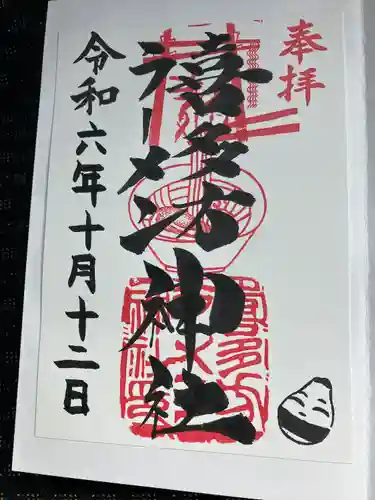 奉拝
喜多方
ラーメン神社
令和六年十月十二日